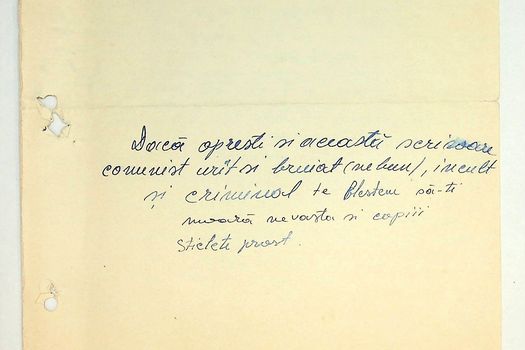 Dacă oprești si această scrisoare
comunist urît si bruiat (nebun), incult
și criminal te blestem să-ti
moară nevasta si copiii
Sticlete prost.